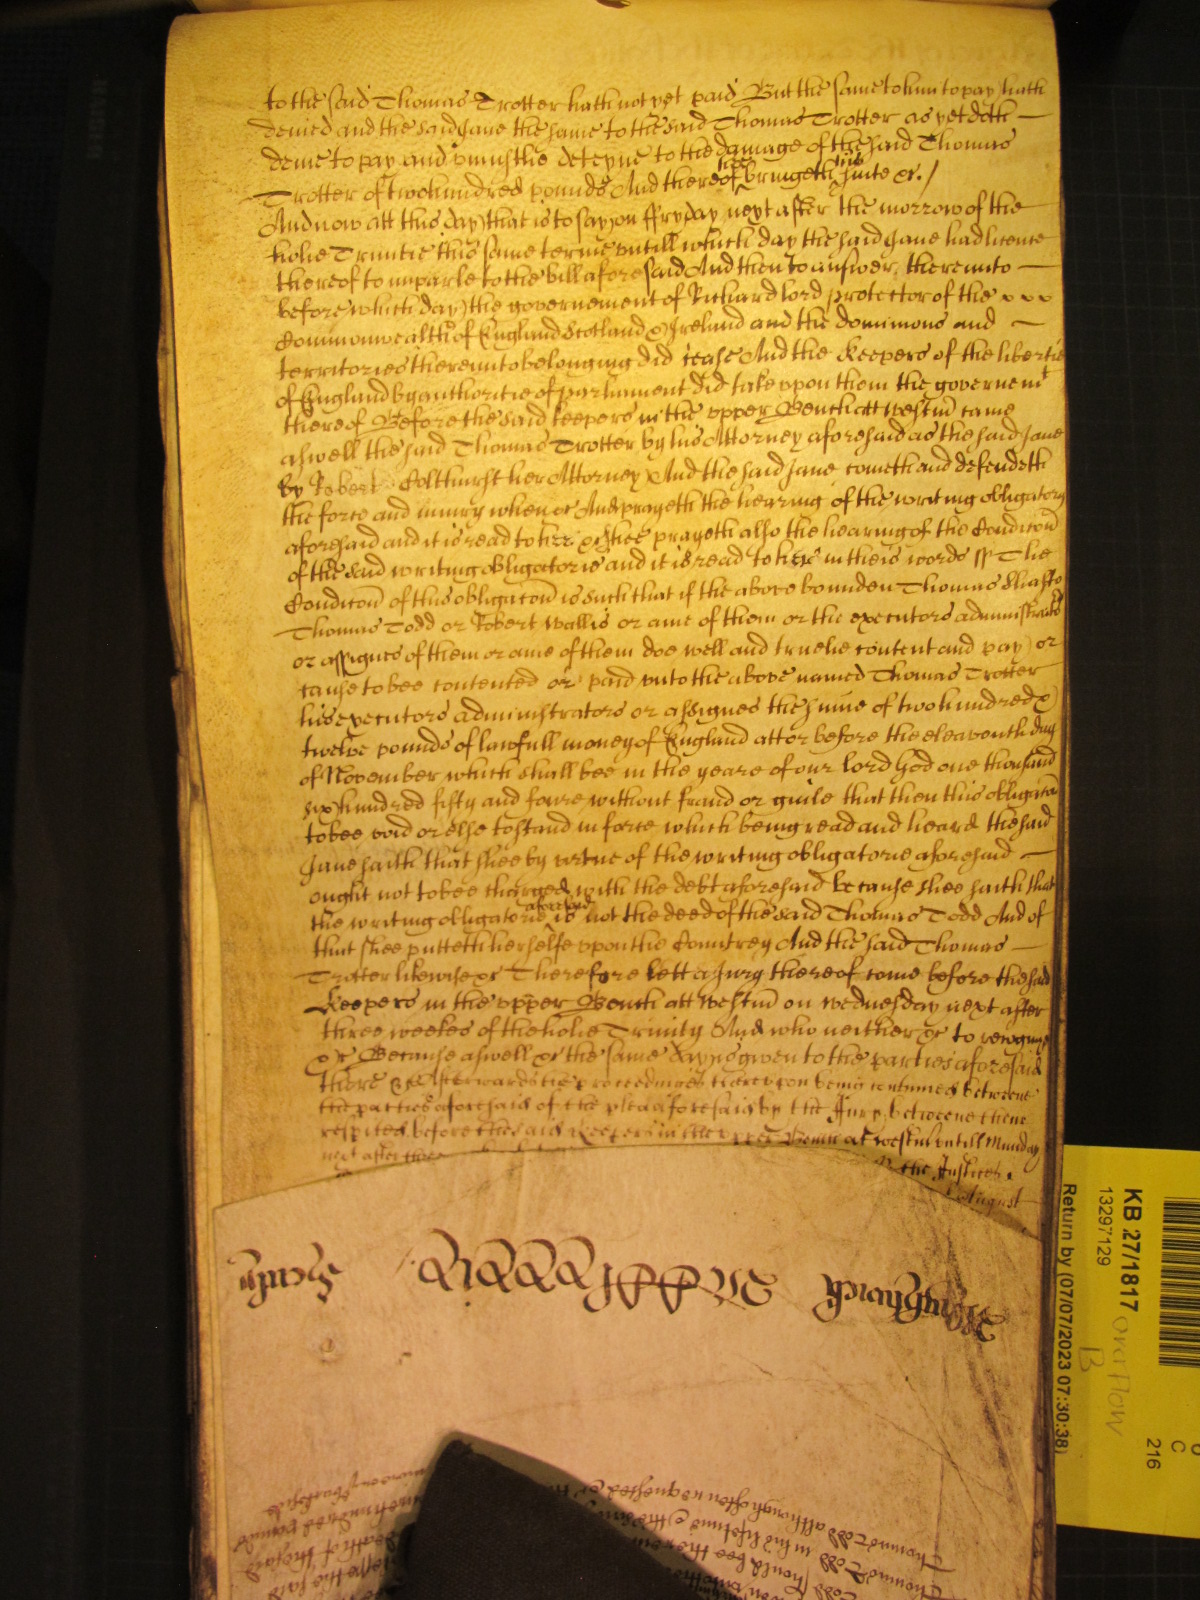 to the said Thomas Trotter hath not yet paid But the same to him to pay hath
denied and the said Jane the same to the said Thomas Trotter as yet doth
denie to pay and uniustlie deteyne to the damage of the said Thomas
Trotter of two hundred pounds And thereof hee bringeth his suite &c. /
And now att this day that is to say on ffryday next after the morrow of the
holie Trinitie this same terme untill which day the said Jane had licence
thereof to imparle to the bill aforesaid And then to answer thereunto
before which day the governement of Richard lord protector of the x x x
Commonwealth of England Scotland & Ireland and the dominions and
territories thereunto belonging did cease And the Keepers of the libertie
of England by authoritie of parliament did take upon them the governemt
thereof Before the said keepers in the upper Bench att westm came
aswell the said Thomas Trotter by his Attorney aforesaid as the said Jane
by Robert Colthurst her Attorney And the said Jane cometh and defendeth
the force and iniury when &c And prayeth the hearing of the writing obligatory
aforesaid and it is read to her &c shee prayeth also the hearing of the Condicon
of the said writing obligatorie and it is read to her in theis words ss The
Condicon of this obligacon is such that if the above bounden Thomas Shafto
Thomas Todd or Robert Wallis or anie of them or the executors administrators
or assignes of them or anie of them doe well and truelie content and pay or
cause to bee contented or paid unto the above named Thomas Trotter
his executors administrators or assignes the sume of two hundred &
twelve pounds of lawfull money of England att or before the eleaventh day
of November which shall bee in the yeare of our lord God one thousand
six hundred fifty and foure without fraud or guile that then this obligacon
to bee void or else to stand in force which being read and heard the said
Jane saith that shee by vertue of the writing obligatorie aforesaid
ought not to bee charged with the debt aforesaid because shee saith that
the writing obligatorie aforesaid is not the deed of the said Thomas Todd And of
that shee putteth herselfe upon the Countrey And the said Thomas
Trotter likewise &c Therefore lett a Jury thereof come before the said
Keepers in the upper Bench att westm on wednesday next after
three weekes of the holie Trinity And who neither &c to recognize
&c Because aswell &c the same day is given to the parties aforesaid
there &c Afterwards the proceedings thereupon being continued betweene
the parties aforesaid of the plea aforesaid by the Jury betweene them
respited before the said Keepers in the upper Bench at westm untill Munday
next after three
the Justices
August
KB 27/1817
overflow
B
13297129
Return by (07/07/2023 07:30:38)
C
216
Thomas Todd in his lifetime
Thomas Todd although often requested